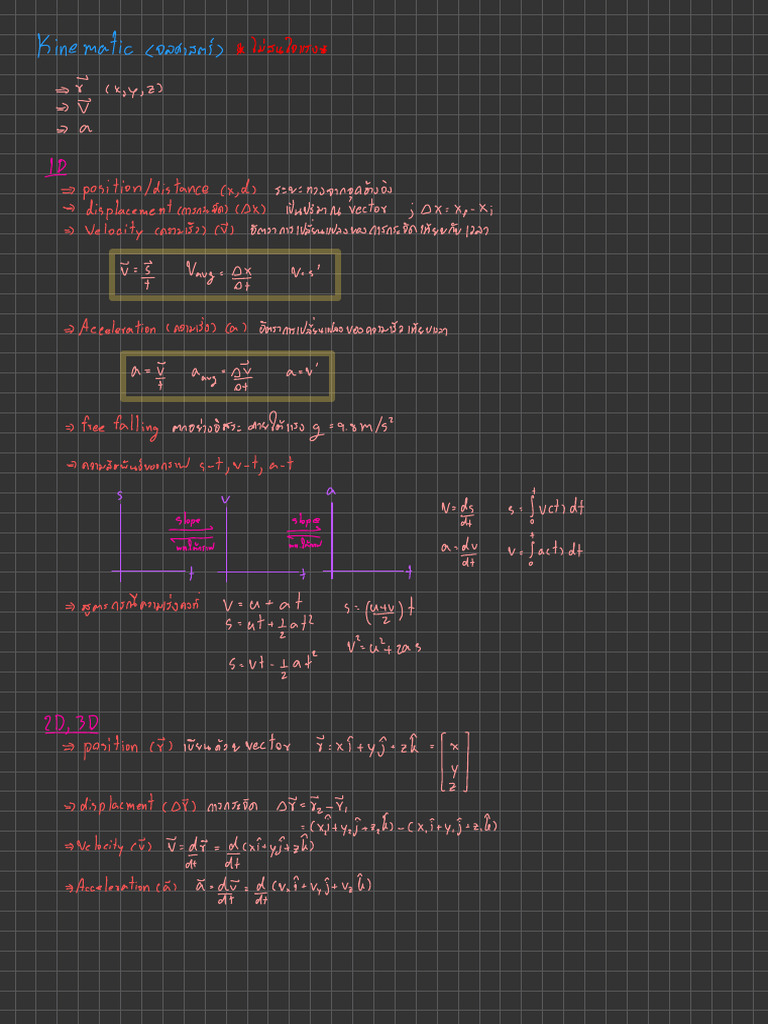 Kinematic (จลศาสตร์) * ไม่สนใจแรง *
⇒ r⃗ (x,y,z)
⇒ v⃗
⇒ a
1D
⇒ position/distance (x,d) ระยะทางจากจุดอ้างอิง
⇒ displacement (การกระจัด) (Δx) เป็นปริมาณ vector ; Δx = x₂ - x₁
⇒ Velocity (ความเร็ว) (v⃗) อัตราการเปลี่ยนแปลงของการกระจัดเทียบกับเวลา
v⃗ = s⃗/t V_avg = Δx/Δt v = s'
⇒ Acceleration (ความเร่ง) (a) อัตราการเปลี่ยนแปลงของความเร็วเทียบเวลา
a = v⃗/t a_avg = Δv⃗/Δt a = v'
⇒ free falling ตกอย่างอิสระ ภายใต้แรง g = 9.8 m/s²
⇒ ความสัมพันธ์ของกราฟ s-t, v-t, a-t
s v a
slope slope
พท.ใต้กราฟ พท.ใต้กราฟ
t t t
v = ds/dt s = ∫₀ᵗ v(t) dt
a = dv/dt v = ∫₀ᵗ a(t) dt
⇒ สูตรกรณีความเร่งคงที่ v = u + at s = ((u+v)/2) t
s = ut + 1/2 at²
v² = u² + 2as
s = vt - 1/2 at²
2D, 3D
⇒ position (r⃗) เขียนด้วย vector r⃗ = xî + yĵ + zk̂ = [x y z]
⇒ displacment (Δr⃗) การกระจัด Δr⃗ = r⃗₂ - r⃗₁
= (x₂î + y₂ĵ + z₂k̂) - (x₁î + y₁ĵ + z₁k̂)
⇒ Velocity (v⃗) v⃗ = dr⃗/dt = d/dt (xî + yĵ + zk̂)
⇒ Acceleration (a⃗) a⃗ = dv⃗/dt = d/dt (vₓî + v_yĵ + v_zk̂)